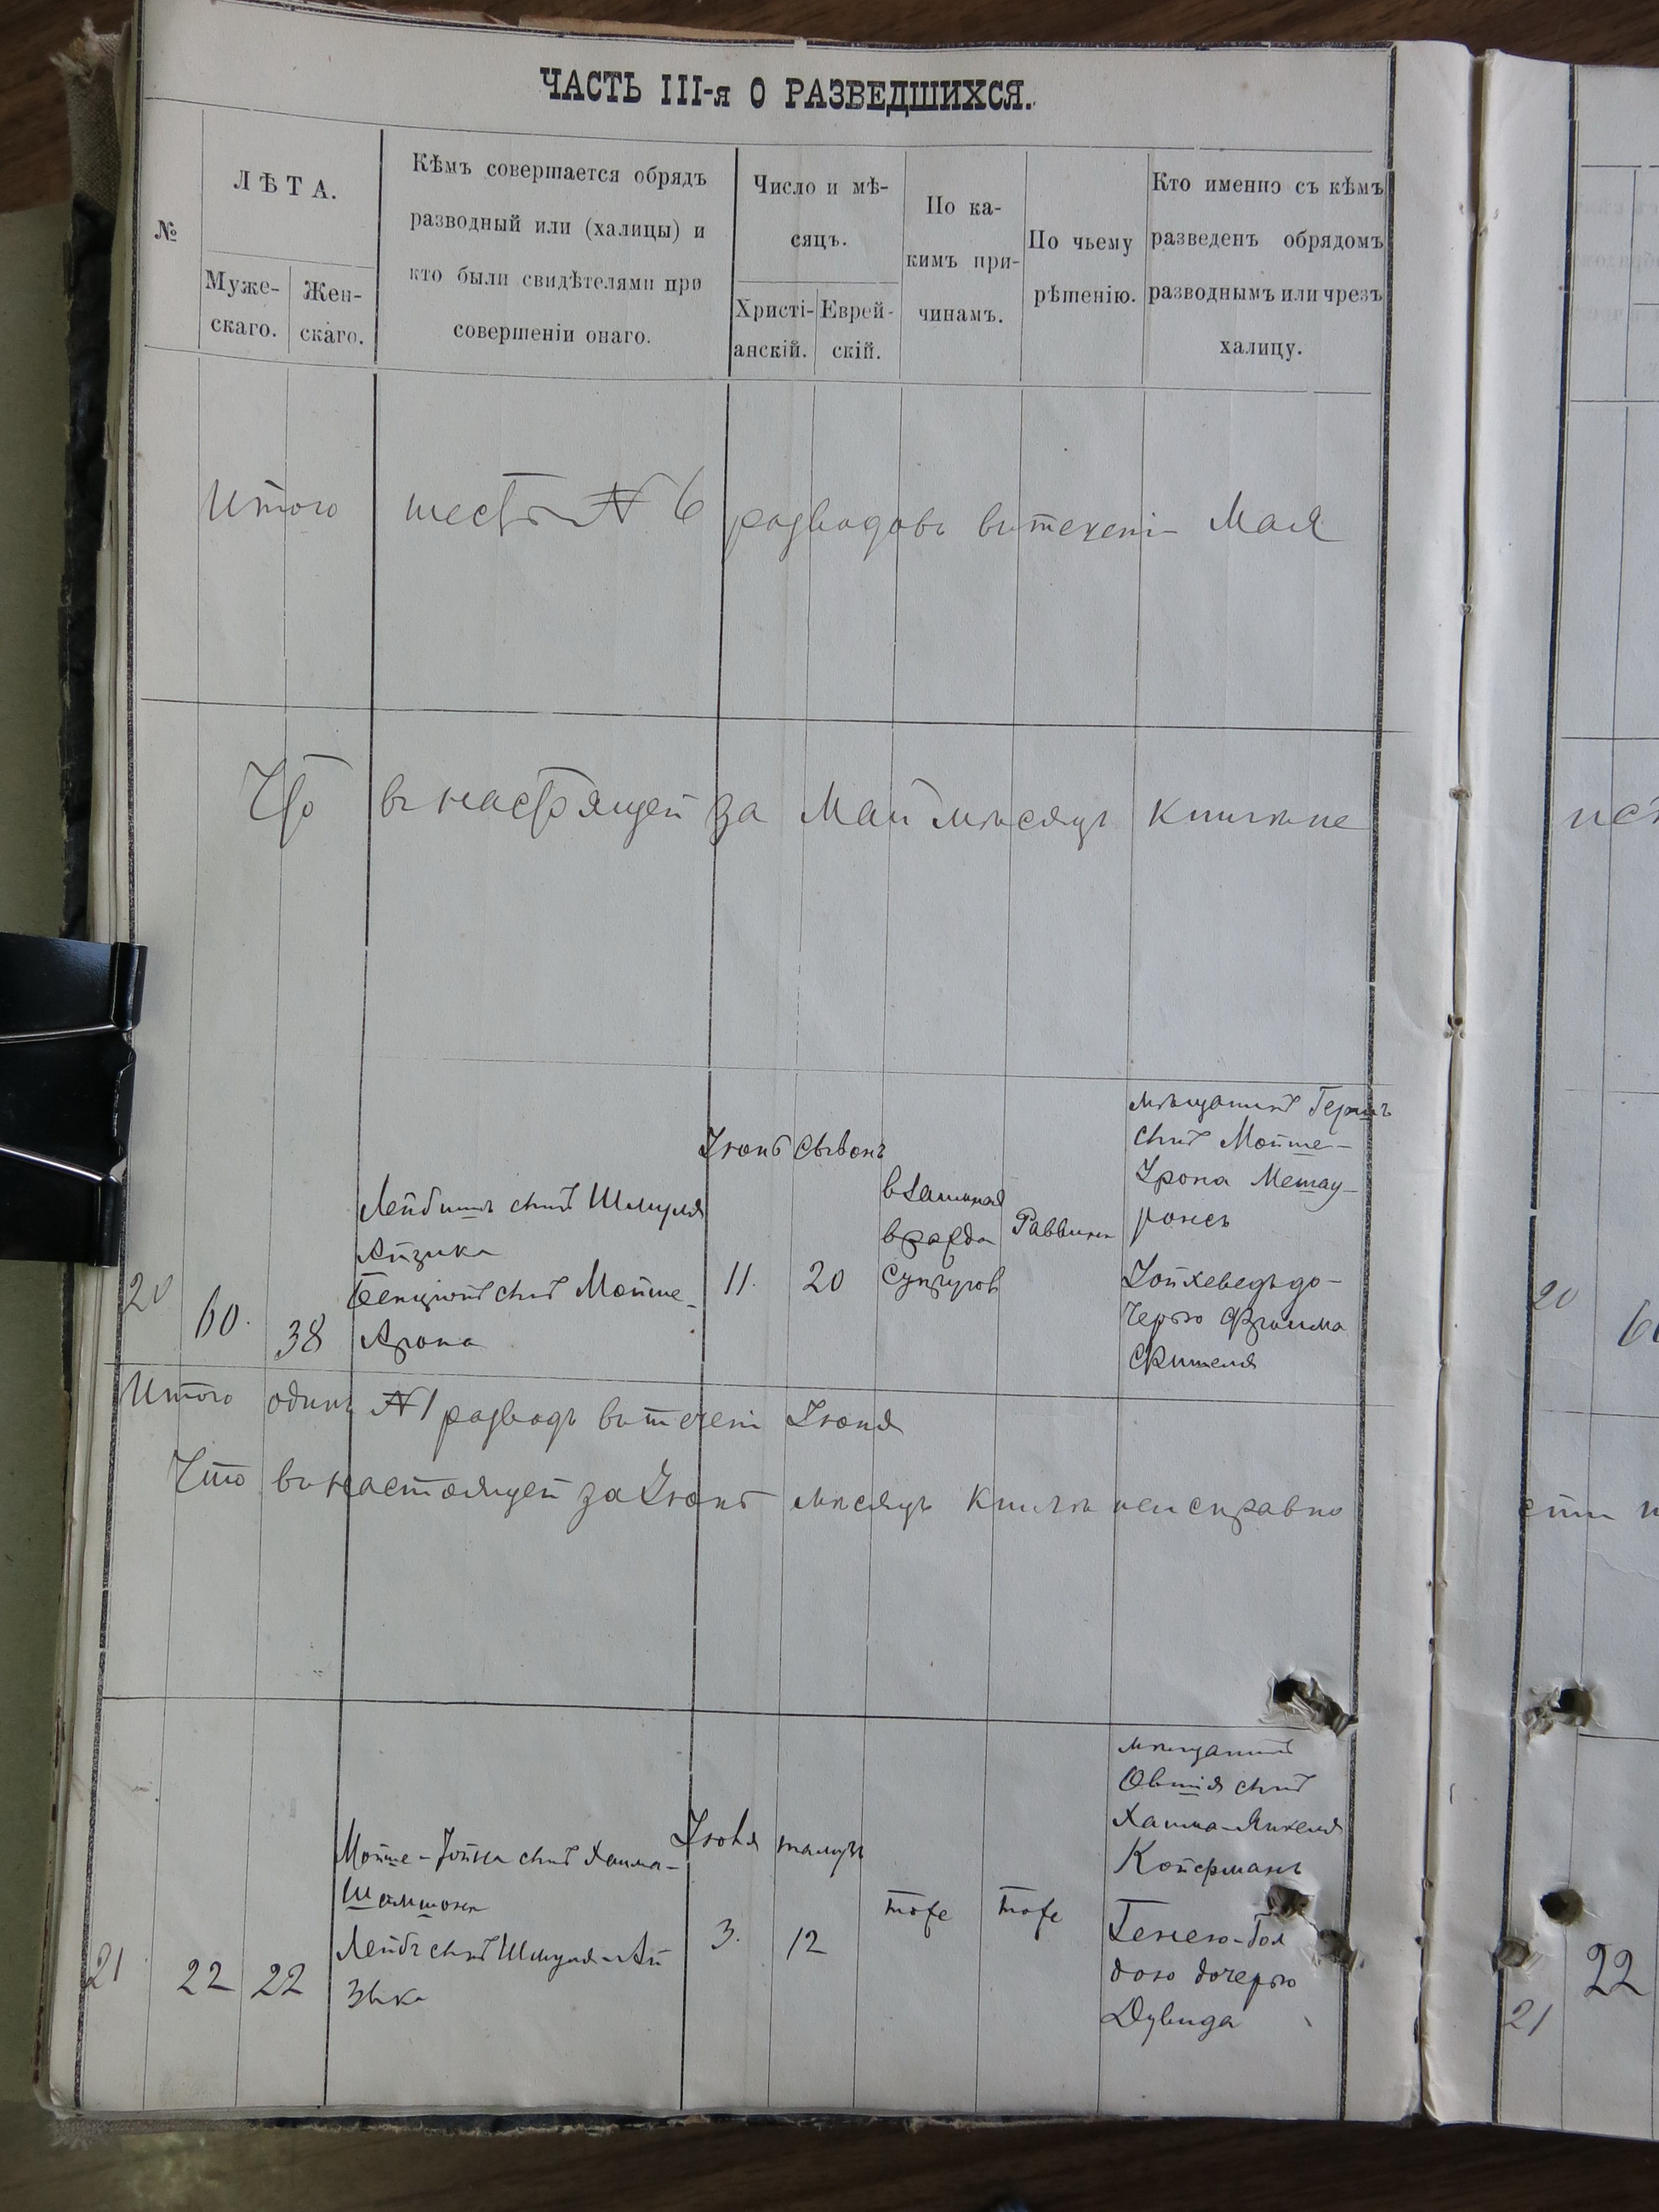 ЧАСТЬ III-я О РАЗВЕДШИХСЯ.
№
ЛѢТА.
Муже-
скаго.
Жен-
скаго.
Кѣмъ совершается обрядъ
разводный или (халицы) и
кто были свидѣтелями при
совершеніи онаго.
Число и мѣ-
сяцъ.
Христі-
анскій.
Еврей-
скій.
По ка-
кимъ при-
чинамъ.
По чьему
рѣшенію.
Кто именно съ кѣмъ
разведенъ обрядомъ
разводнымъ или чрезъ
халицу.
Итого шесть № 6 разводовъ въ теченіи Мая
Что въ настоящей за Май мѣсяцъ книгѣ не
20
60.
38
Лейбишъ сынъ Шмуля
Айзика
Бенціонъ сынъ Мойше-
Арона
Іюнь
11.
Сывонъ
20
взаимная
вражда
супруговъ
Раввина
мѣщанинъ Гершъ
сынъ Мойше-
Арона
Іойхеведъ до-
черью Фроима
Итого одинъ № 1 разводъ въ теченіи Іюня
Что въ настоящей за Іюнь мѣсяцъ книгѣ неисправно
21
22
22
Мойше-Іойна сынъ Хаима-
Шамшона
Лейбъ сынъ Шмуля-Ай
зыка
Іюля
3.
тамузъ
12
тоже
тоже
мѣщанинъ
Овшія сынъ
Хаима-Янкеля
Койфманъ
Генею-Гол
дою дочерью
Дувида
20
21
22